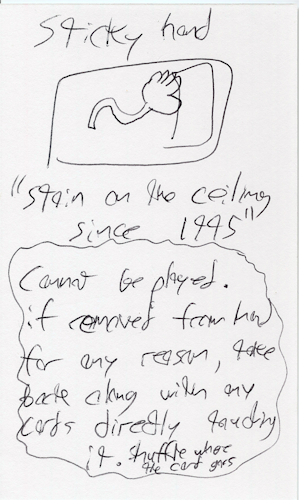 Sticky hand
"Stain on the ceiling
since 1995"
Cannot be played.
if removed from hand
for any reason, take
back along with any
cards directly touching
it. Shuffle where
the card goes